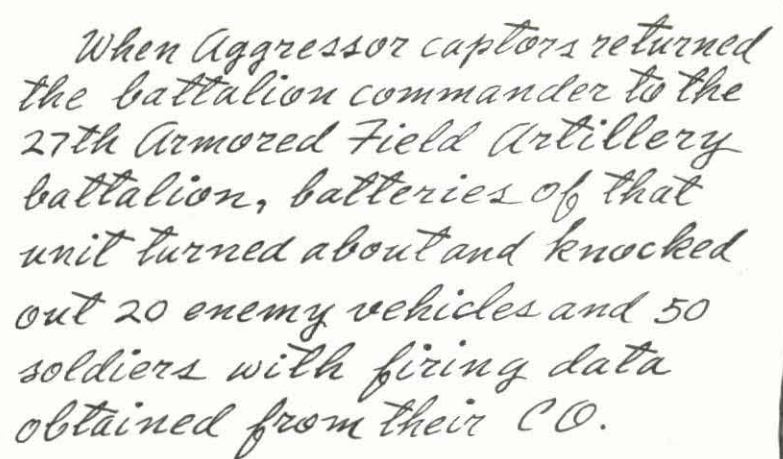 When Aggressor captors returned
the battalion commander to the
27th Armored Field Artillery
battalion, batteries of that
unit turned about and knocked
out 20 enemy vehicles and 50
soldiers with firing data
obtained from their CO.